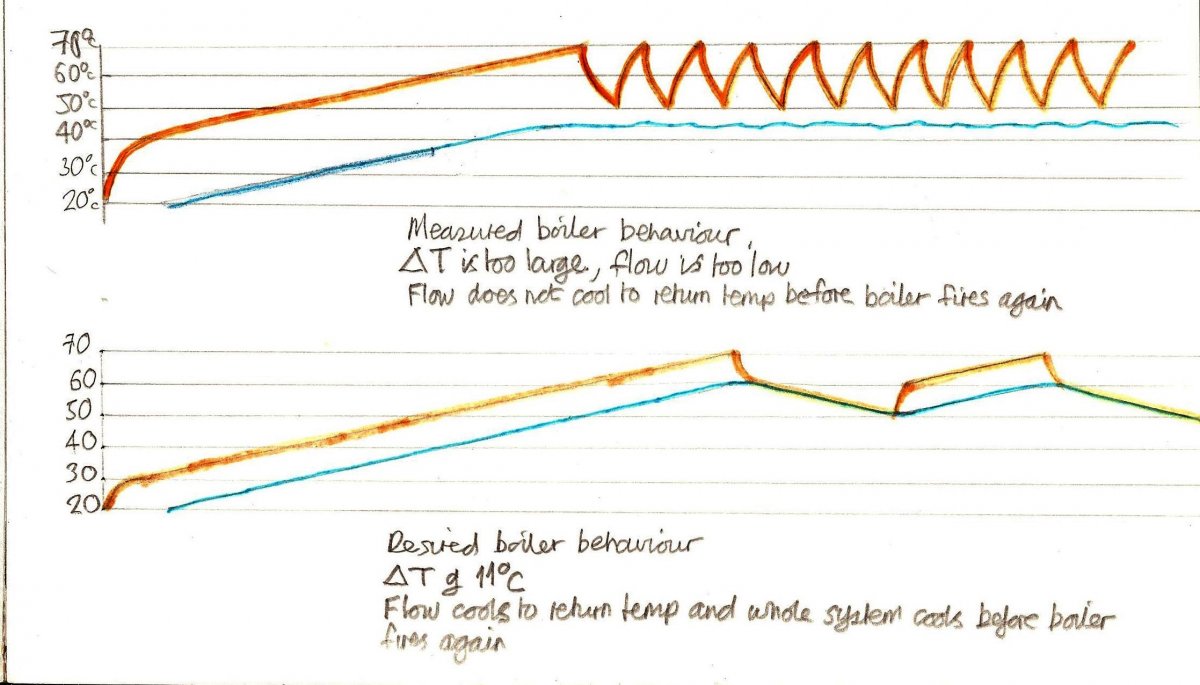 70°c
60°c
50°c
40°c
30°c
20°c
Measured boiler behaviour,
ΔT is too large, flow is too low
Flow does not cool to return temp before boiler fires again
70
60
50
40
30
20
Desired boiler behaviour
ΔT of 11°C
Flow cools to return temp and whole system cools before boiler
fires again